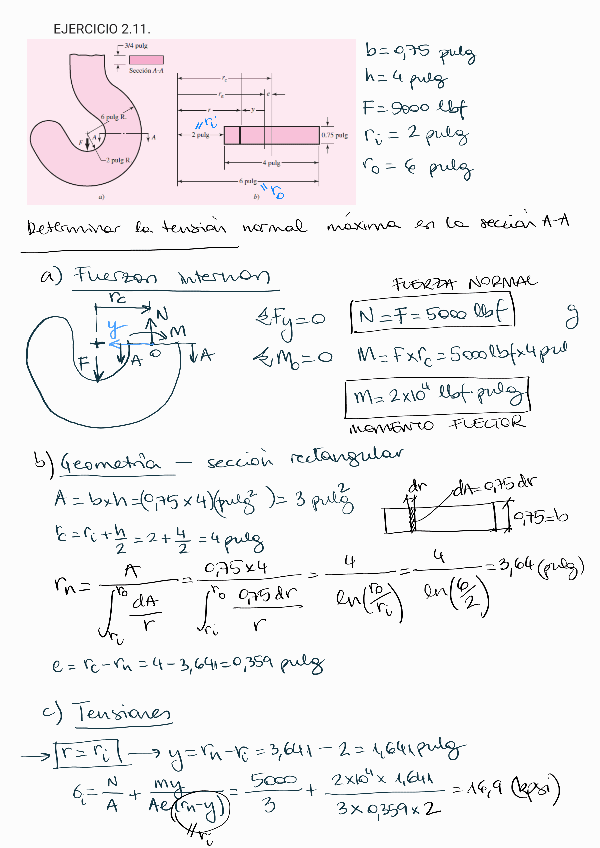 EJERCICIO 2.11.
3/4 pulg
Sección A-A
6 pulg R.
F
A
A
2 pulg R.
a)
r_c
r_n
e
r
y
2 pulg
// r_i
0.75 pulg
4 pulg
6 pulg
// r_o
b)
b = 0,75 pulg
h = 4 pulg
F = 5000 lbf
r_i = 2 pulg
r_o = 6 pulg
Determinar la tensión normal máxima en la sección A-A
a) Fuerzas internas
r_c
N
y
M
F
A
O
A
FUERZA NORMAL
ΣFy = 0
N = F = 5000 lbf
g
ΣMo = 0
M = F x r_c = 5000 lbf x 4 pul
M = 2x10⁴ lbf·pulg
MOMENTO FLECTOR
b) Geometría — sección rectangular
A = b x h = (0,75 x 4)(pulg²) = 3 pulg²
dr
dA = 0,75 dr
0,75 = b
r_c = r_i + h/2 = 2 + 4/2 = 4 pulg
r_n = A / ∫_{r_i}^{r_o} dA/r = 0,75 x 4 / ∫_{r_i}^{r_o} 0,75 dr / r = 4 / ln(r_o/r_i) = 4 / ln(6/2) = 3,64 (pulg)
e = r_c - r_n = 4 - 3,641 = 0,359 pulg
c) Tensiones
→ r = r_i → y = r_n - r_i = 3,641 - 2 = 1,641 pulg
σ_i = N/A + My / Ae(r_n - y) = 5000/3 + 2x10⁴ x 1,641 / 3 x 0,359 x 2 = 16,9 (kpsi)
// r_i